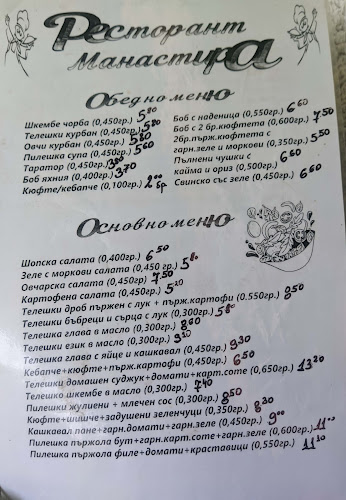 Ресторант
Манастира
Обедно меню
Шкембе чорба (0,450гр.) 5.80
Телешки курбан (0,450гр.) 5.80
Овчи курбан (0,450гр.) 5.80
Пилешка супа (0,450гр.) 5.60
Таратор (0,450гр.)
Боб яхния (0,400гр.) 3.70
Кюфте/кебапче (0,100гр.) 2.00 бр
Боб с наденица (0,550гр.) 6.60
Боб с 2 бр.кюфтета (0,600гр.) 7.50
2бр.пърж.кюфтета с
гарн.зеле и моркови (0,350гр.) 5.50
Пълнени чушки с
кайма и ориз (0,500гр.) 6.60
Свинско със зеле (0,450гр.) 6.60
Основно меню
Шопска салата (0,400гр.) 6.50
Зеле с моркови салата (0,450 гр.) 5.80
Овчарска салата (0,450гр) 7.50
Картофена салата (0,450гр.) 5.20
Телешки дроб пържен с лук + пърж.картофи (0.550гр.) 8.50
Телешки бъбреци и сърца с лук (0,300гр.) 5.80
Телешка глава в масло (0,300гр.) 8.60
Телешки език в масло (0,300гр.) 9.20
Телешка глава с яйце и кашкавал (0,450гр.) 9.30
Кебапче+кюфте+пърж.картофи (0,450гр.) 6.50
Телешки домашен суджук+домати+гарн.картоф.соте (0,650гр.) 13.20
Телешко шкембе в масло (0,300гр.) 7.40
Пилешки жулиени + млечен сос (0,300гр.) 8.50
Кюфте+шишче+задушени зеленчуци (0,350гр.) 8.20
Кашкавал пане+гарн.домати+гарн.зеле (0,450гр.) 9.00
Пилешка пържола бут+гарн.карт.соте+гарн.зеле (0,600гр.) 11.00
Пилешка пържола филе+домати+краставици (0,550гр.) 11.20